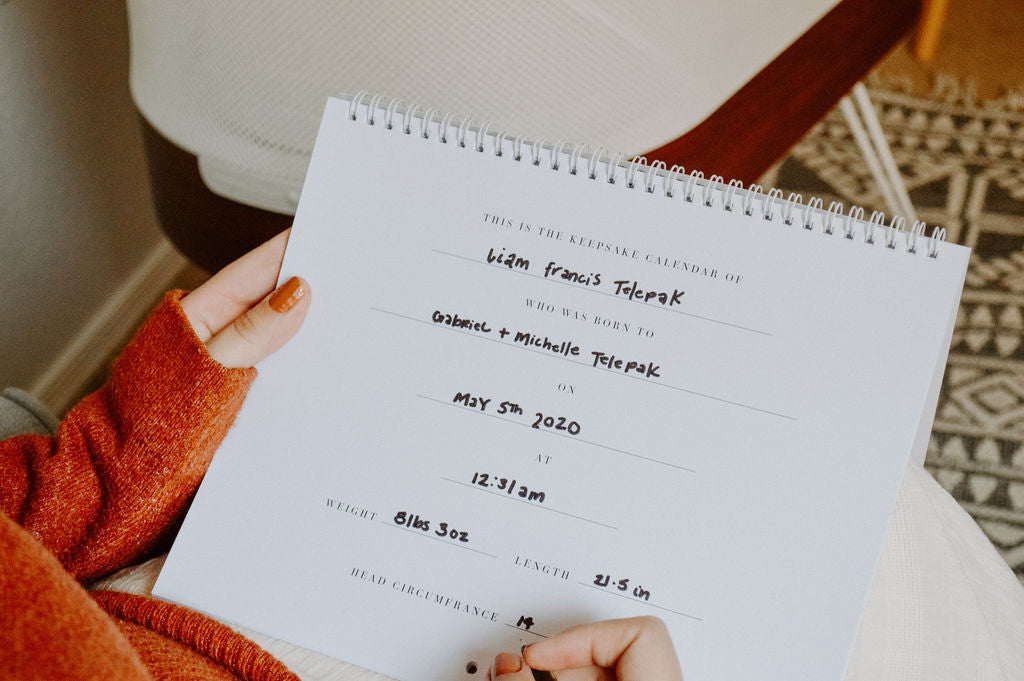 THIS IS THE KEEPSAKE CALENDAR OF
Liam Francis Telepak
WHO WAS BORN TO
Gabriel + Michelle Telepak
ON
May 5th 2020
AT
12:31am
WEIGHT 8lbs 3oz LENGTH 21.5 in
HEAD CIRCUMFRANCE 14